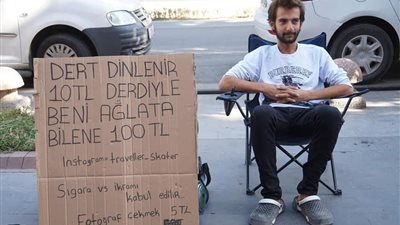 DERT DİNLENİR
10TL DERDİYLE
BENİ AĞLATA
BİLENE 100TL
Instagram: traveller_skater
Sigara vs ikramı
kabul edilir.
Fotoğraf çekmek 5TL
BURBERRY